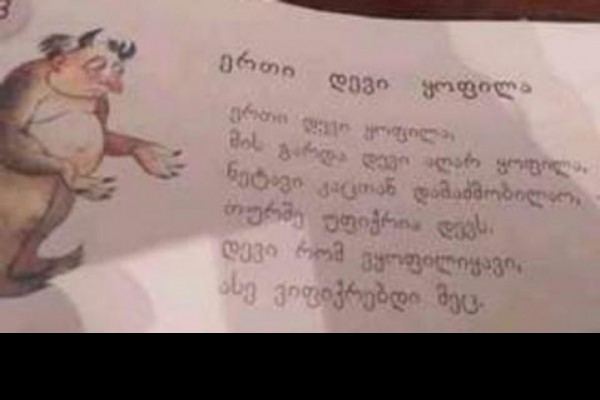 ერთი დევი ყოფილა
ერთი დევი ყოფილა,
მის გარდა დევი აღარ ყოფილა,
ნეტავი კაცთან დამაძმობილაო, -
თურმე უფიქრია დევს.
დევი რომ ვყოფილიყავი,
ასე ვიფიქრებდი მეც.